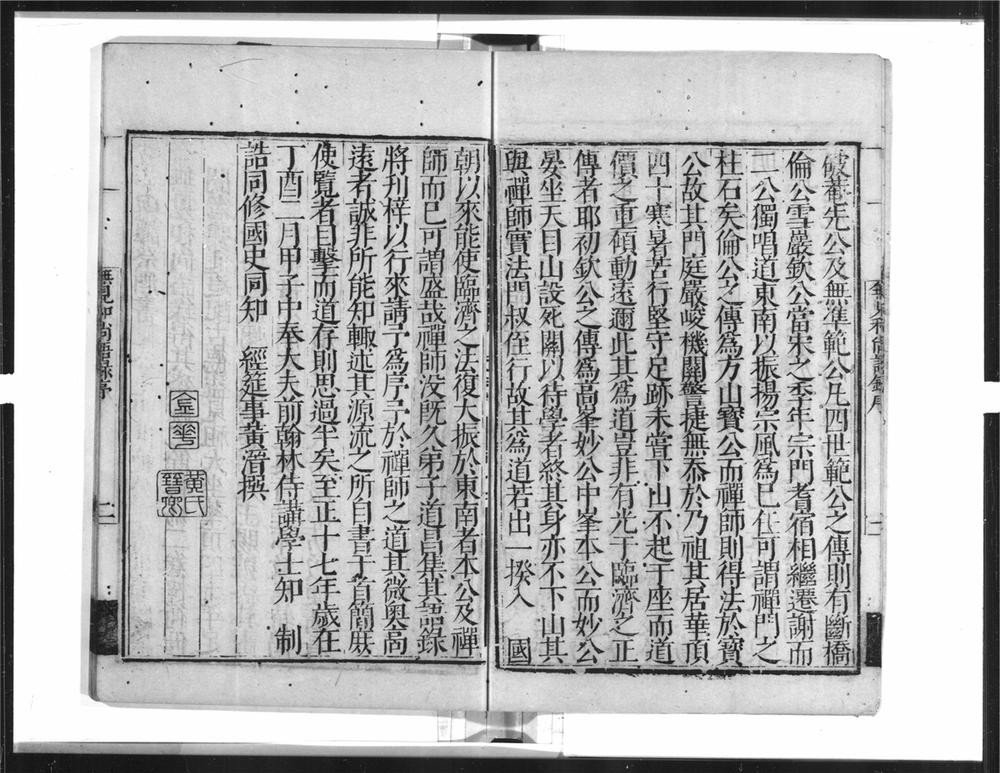 破菴先公及無準範公凡四世範公之傳則有斷橋
倫公雪巖欽公當宋之季年宗門耆宿相繼還謝而
二公獨唱道東南以振揚宗風為已任可謂禪門之
柱石矣倫公之傳為方山寶公而禪師則得法於寶
公故其門庭嚴峻機關警捷無忝於乃祖其居華頂
四十寒暑苦行堅守足跡未嘗下山不起于座而道
價之重碩動遠邇此其為道豈非有光于臨濟之正
傳者耶初欽公之傳為高峯妙公中峯本公而妙公
晏坐天目山設死關以待學者終其身亦不下山其
與禪師實法門叔侄行故其為道若出一揆入　國
無見和尚語錄序
二
朝以來能使臨濟之法復大振於東南者本公及禪
師而已可謂盛哉禪師沒既久弟子道昌集其語錄
將刋梓以行來請予為序予於禪師之道其微奧高
遠者誠非所能知輙述其源流之所自書于首簡庶
使覽者目擊而道存則思過半矣至正十七年歲在
丁酉二月甲子中奉大夫前翰林侍講學士知　制
誥同修國史同知　經筵事黃溍撰
金華
黃氏
無見和尚語錄序
二